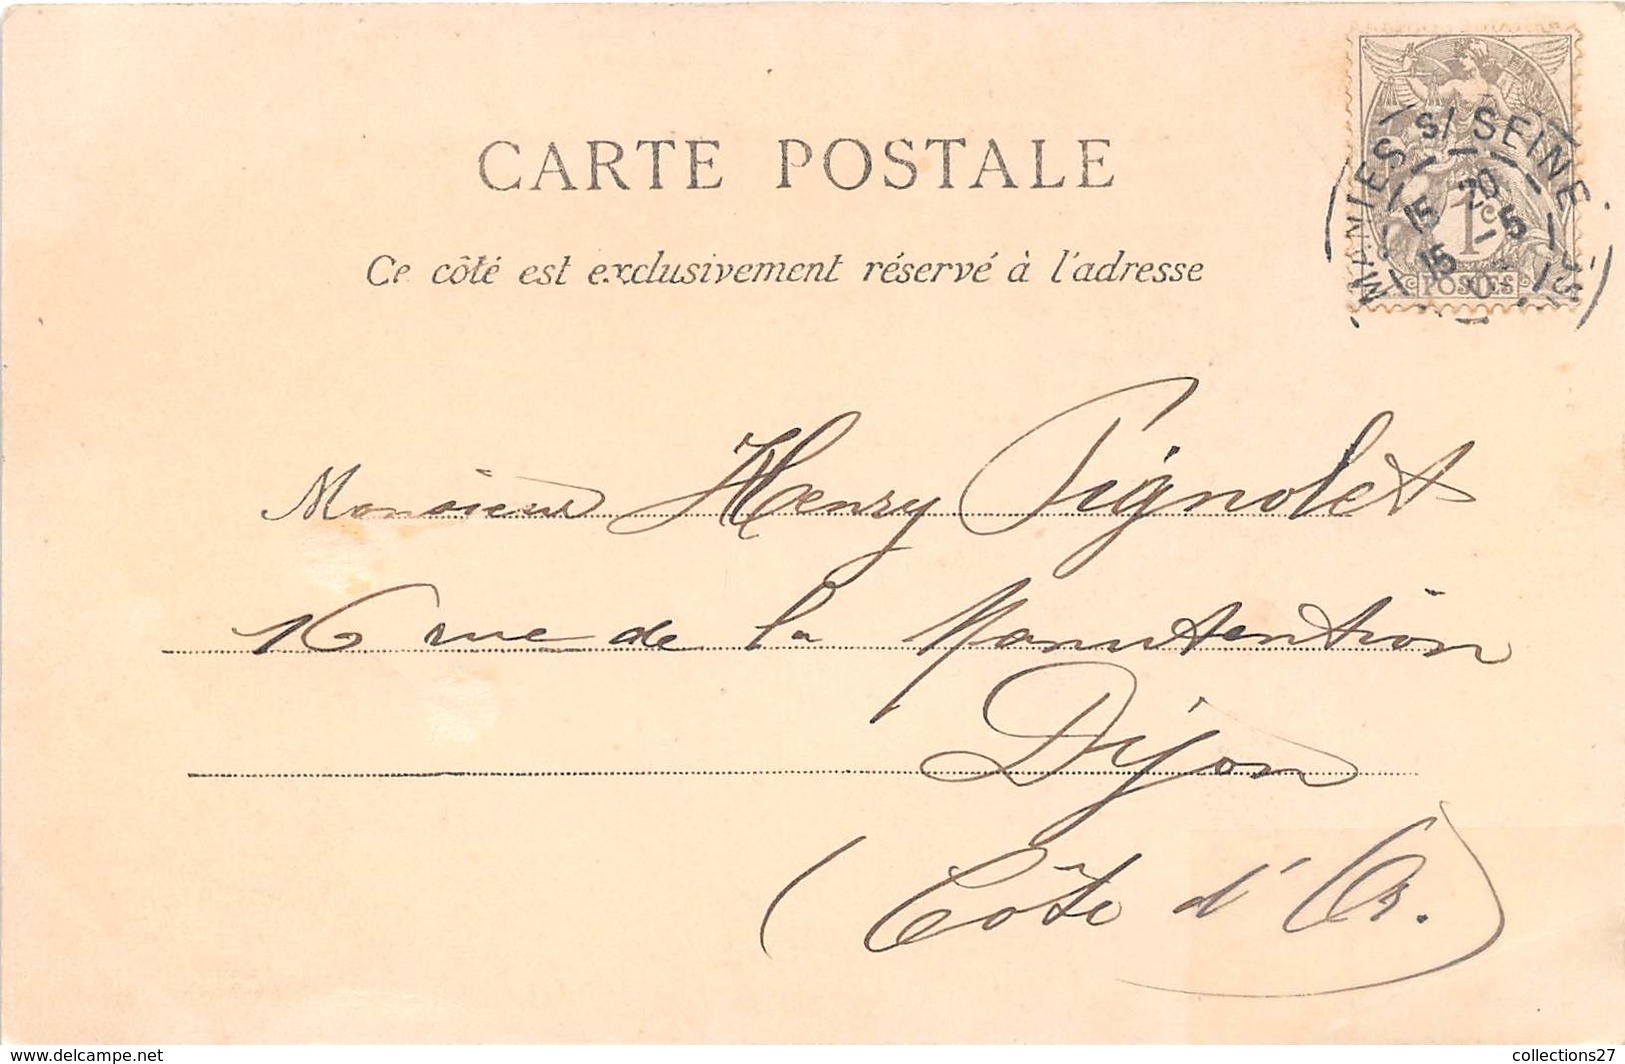 CARTE POSTALE
Ce côté est exclusivement réservé à l'adresse
1c
POSTES
S/ SEINE
15 20
15 -5
Monsieur Henry Pignolet
16 rue de la Manutention
Dijon
(Côte d'Or.)
www.delcampe.net
collections27